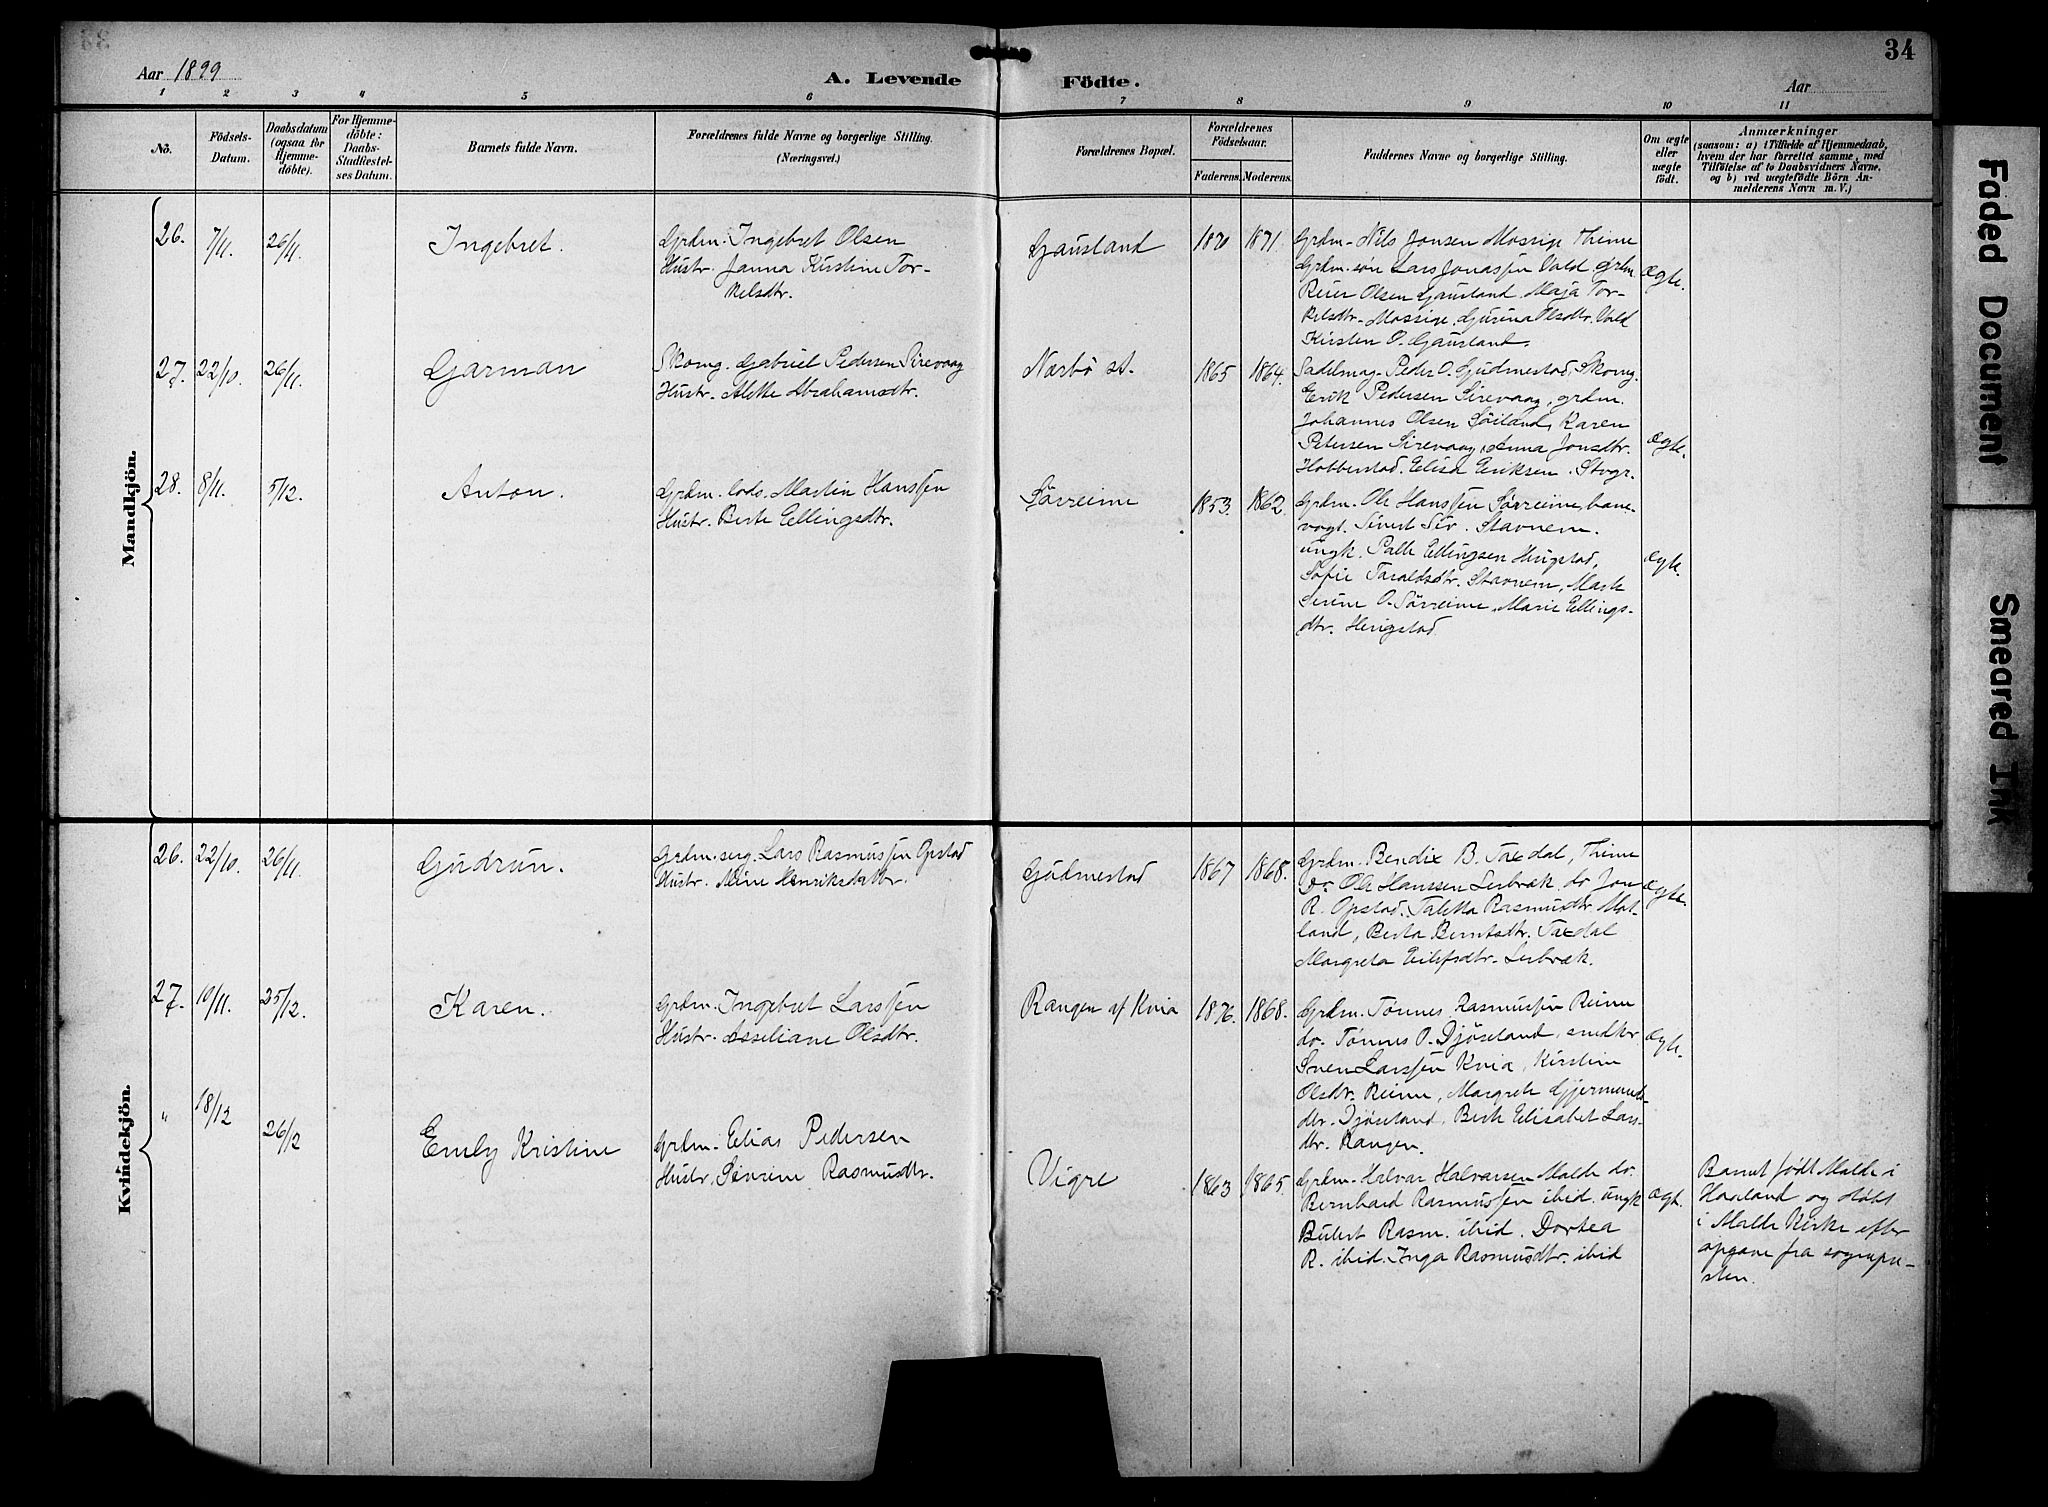 34
Aar 1899
A. Levende Födte.
Aar
1 2 3 4 5 6 7 8 9 10 11
Nô.
Födsels-
Datum.
Daabsdatum
(ogsaa for
Hjemme-
döbte).
For Hjemme-
döbte:
Daabs-
Stadfæstel-
ses Datum.
Barnets fulde Navn.
Forældrenes fulde Navne og borgerlige Stilling.
(Næringsvei.)
Forældrenes Bopæl.
Forældrenes
Födselsaar.
Faderens. Moderens.
Faddernes Navne og borgerlige Stilling.
Om ægte
eller
uægte
födt.
Anmærkninger
(saasom: a) i Tilfælde af Hjemmedaab,
hvem der har forrettet samme, med
Tilföielse af to Daabsvidners Navne,
og b) ved uægtefödte Börn An-
melderens Navn m. V.)
Mandkjön.
26. 7/11. 26/11 Ingebret.
Grdm. Ingebret Olsen
Hustr. Janna Kirstine Tor-
kelsdtr.
Gausland 1870 1871.
Grdm. Nils Jonsen Mossige Thime
Grdm. søn Lars Jonassen Vold, grdm.
Reier Olsen Gausland, Maja Tor-
kelsdtr. Mossige, Gurina Olsdtr. Vold
Kirsten O. Gausland.
Ægte.
27. 22/10. 26/11. Garman
Skomg. Gabriel Pedersen Sirevaag
Hustr. Alette Abrahamsdtr.
Nærbö st. 1865 1864.
Sadelmag. Peder O. Gudmestad, Skomg.
Erik Pedersen Sirevaag, grdm.
Johannes Olsen Söiland, Karen
Petersen Sirevaag, Anna Jonsdtr.
Hobberstad, Elisa Eriksen, Stvgr.
Ægte.
28. 8/11. 5/12. Anton.
Grdm. lods. Martin Hanssen
Hustr. Berte Ellingsdtr.
Sörreime 1853. 1862.
Grdm. Ole Hanssen Sörreime, bane-
vogt. Sivert Siv. Stavnem.
ungk. Palle Ellingsen Herigstad,
Sofie Taraldsdtr. Stavnem, Marte
Serine O. Sörreime, Marie Ellings-
dtr. Herigstad.
Ægte.
Kvindekjön.
26. 22/10. 26/11. Gudrun.
Grdm. serg. Lars Rasmussen Opstad
Hustr. Mine Henriksdatter.
Gudmestad 1867 1868.
Grdm. Bendix B. Taxdal, Thime
Do. Ole Hanssen Serbræk, do Jon
R. Opstad, Taletta Rasmusdtr. Mat-
land, Berta Berntsdtr. Taxdal
Margreta Eilefsdtr. Serbræk.
Ægte.
27. 10/11. 25/12. Karen.
Grdm. Ingebret Larssen
Hustr. Asseliane Olsdtr.
Rangen af Kvia 1876. 1868.
Grdm. Tönnes Rasmussen Reime
do. Tönnes O. Djöseland, smedker
Sven Larssen Kvia, Kirstine
Olsdtr. Reime, Margrete Gjermunds-
dtr. Djöseland, Berte Elisabet Lars-
dtr. Rangen.
Ægte.
" 18/12 26/12 Emely Kristine
Grdm. Elias Pedersen
Hustr. Severine Rasmusdtr.
Vigre 1863 1865.
Grdm. Halvar Halvarsen Malde do.
Bernhard Rasmussen ibid. ungk
Bertel Rasm. ibid. Dortea
R. ibid. Inga Rasmusdtr. ibid
Ægte.
Barnet født Malde i
Haaland og døbt
i Malde Kirke efter
opgave fra sognepre-
sten.
Faded Document
Smeared Ink